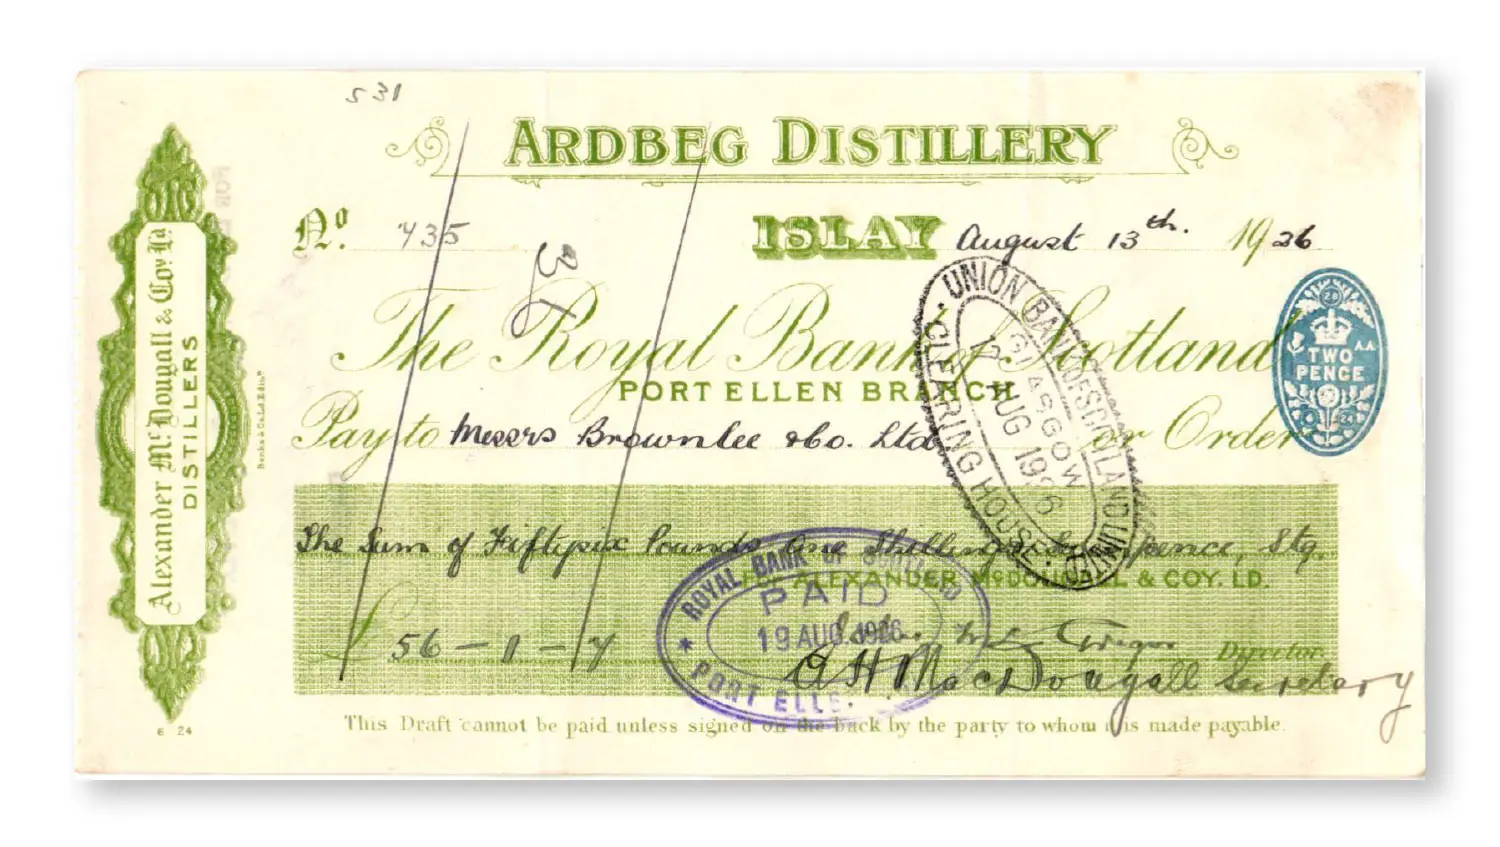 531
ARDBEG DISTILLERY
No. 735
ISLAY August 13th. 1926
36
The Royal Bank of Scotland
PORT ELLEN BRANCH
Pay to Messrs Brownlee & Co. Ltd or Order
The Sum of Fiftysix Pounds, One Shilling pence, Stg.
FOR ALEXANDER McDOUGALL & COY. LD.
£ 56 – 1 – 7
Director.
A H MacDougall Secretary
This Draft cannot be paid unless signed on the back by the party to whom it is made payable.
Alexander McDougall & Coy. Ld.
DISTILLERS
Banks & Co. Ld. Edinr.
6 24
TWO PENCE
28
A.A.
24
UNION BANK OF SCOTLAND LIMITED
CLEARING HOUSE
GLASGOW
17 AUG 1926
ROYAL BANK OF SCOTLAND
PAID
19 AUG 1926
PORT ELLEN